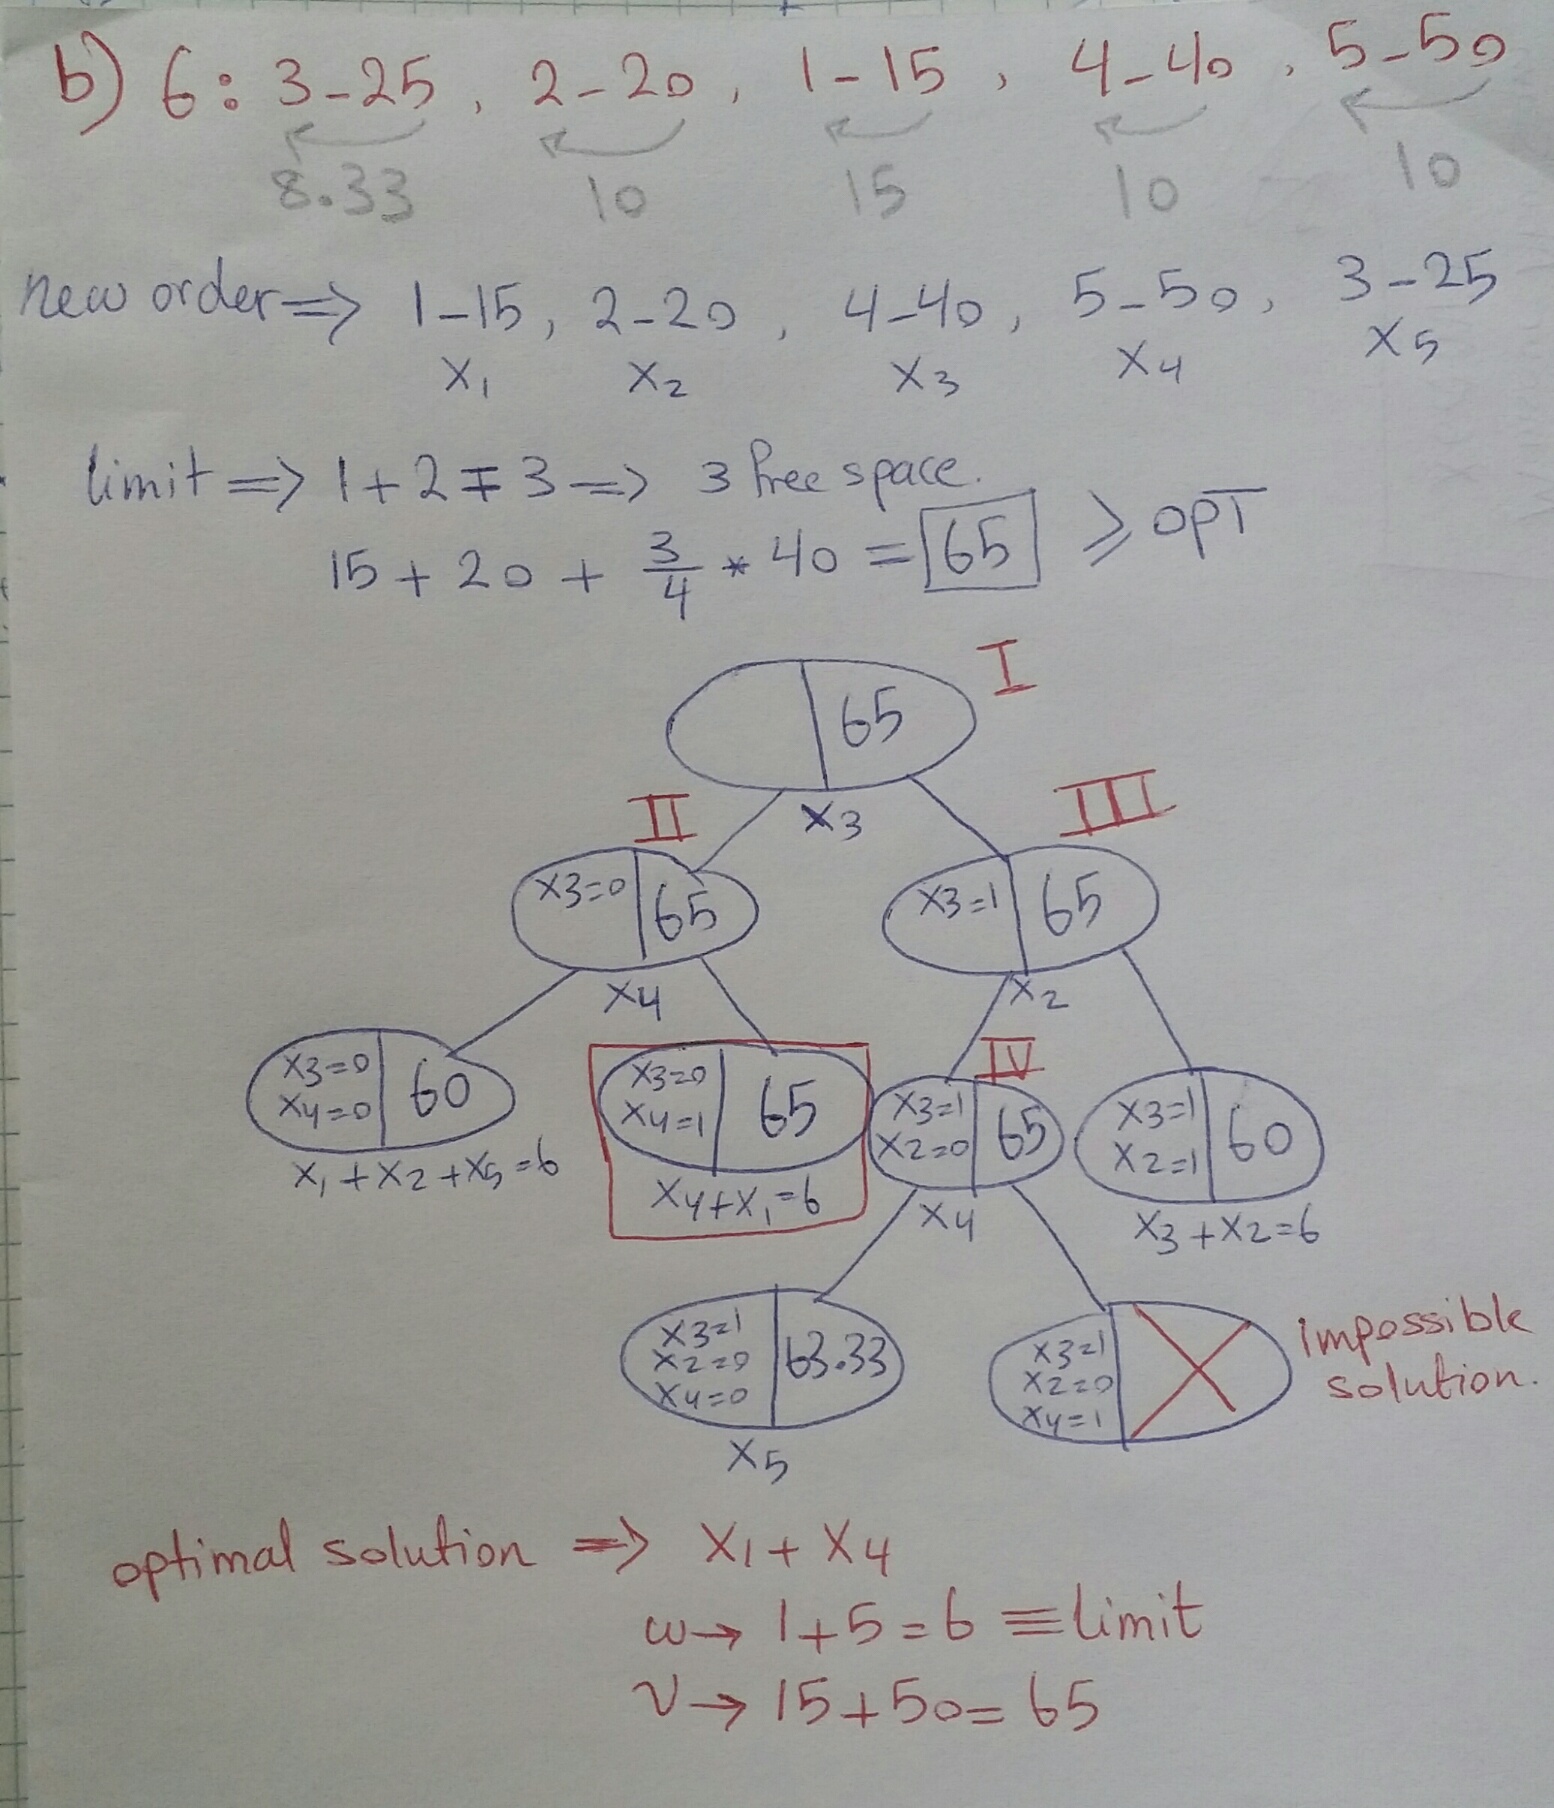 b) 6: 3-25, 2-20, 1-15, 4-40, 5-50
8.33 10 15 10 10
new order => 1-15, 2-20, 4-40, 5-50, 3-25
x1 x2 x3 x4 x5
limit => 1+2=3 => 3 free space.
15+20+ 3/4 * 40 = 65 ≥ OPT
65 I
II x3 III
x3=0 65 x3=1 65
x4 x2
IV
x3=0 x4=0 60
x3=0 x4=1 65
x3=1 x2=0 65
x3=1 x2=1 60
x1+x2+x5=6 x4+x1=6 x4 x3+x2=6
x3=1 x2=0 x4=0 63.33
x3=1 x2=0 x4=1
impossible
solution.
x5
optimal solution => x1+x4
w→ 1+5=6 ≡ limit
v→ 15+50=65